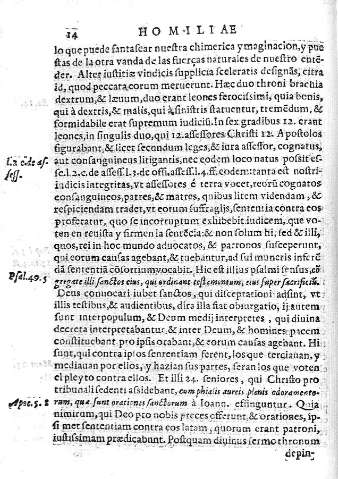 14 HOMILIAE
lo que puede fantasear nuestra chimerica ymaginacion, y pue
stas de la otra vanda de las fuerças naturales de nuestro enté-
der. Alter iustitiæ vindicis supplicia sceleratis designãs, citra
id, quod peccata eorum meruerunt. Hæc duo throni brachia
dextrum, & læuum, duo erant leones ferocissimi, quia benis,
qui à dextris, & malis, qui à sinistris statuentur, tremẽdum, &
formidabile erat supremum iudiciũ. In sex gradibus 12. erant
leones, in singulis duo, qui 12. assessores Christi 12. Apostolos
figurabant, & licet secundum leges, & iura assessor, cognatus,
aut consanguineus litigantis, nec eodem loco natus possit es-
se. l. 2. C. de assess. l. 3. de offi. assess. l. 4. ff. eodem: tanta est nostri
iudicis integritas, vt assessores è terra vocet, reorũ cognatos
consanguineos, patres, & matres, quibus litem videndam, &
respiciendam tradet, vt eorum suffragijs, sententia contra eos
proferatur, quo se incorruptum exhibebit iudicem, que vo-
ten en reuista y firmen la sentẽcia: & non solum hi, sed & illi,
quos, rei in hoc mundo aduocatos, & patronos susceperunt,
qui eorum causas agebant, & tuebantur, ad sui muneris inferẽ
dã sententiã cõsortium vocabit. Hic est illius psalmi sensus, cõ
gregate illi sanctos eius, qui ordinant testamentum, eius super sacrificiũ.
Deus conuocari iubet sanctos, qui disceptationi adsint, vt
illis testibus, & audientibus, dira illa fiat obiurgatio, ij autem
sunt interpopulum, & Deum medij interpretes, qui diuina
decreta interpretabantur, & inter Deum, & homines pacem
constituebant pro ipsis orabant, & eorum causas agebant. Hi
sunt, qui contra ipsos sententiam ferent, los que tercianan, y
medianan por ellos, y hazian sus partes, seran los que voten
en el pleyto contra ellos. Et illi 24. seniores, qui Christo pro
tribunali sedenti assidebant, cum phialis aureis plenis odoramento-
rum, quæ sunt orationes sanctorum à Ioann. effinguntur. Quia
nimirum, qui Deo pro nobis preces offerunt, & orationes, ip-
si met sententiam contra eos latam, quorum erant patroni,
iustissimam prædicabunt. Postquam diuinus sermo thronom
depin-
La C de as.
sess.
Psal. 49. 5
Apoc. 5. 8